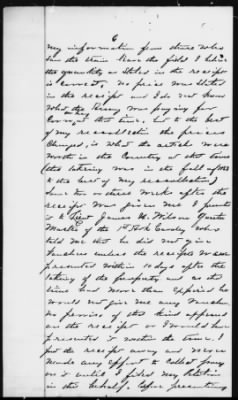 6
my information from those who
saw the train leave the field I believe
the quantity as stated in the receipt
is correct. No price was stated
in the receipt and I do not know
what the Army was paying for
Corn, at that time, but to the best
of my recollection the prices
Charged, is what the article were
worth in the Country at that time
(the taking was in the fall of 1863
to the best of my recollection)
Some two or three weeks after the
receipt was given me I presented
it to Lieut James H. Wilson Quarter
Master of the 1st Cavalry who
told me that he did not give
Vouchers unless the receipts were
presented within 10 days after the
taking of the property and as the
time had more than expired he
would not give me any Voucher
no proviso of this kind appeared
on the receipt or I would have
presented it within the time. I
put the receipt away and never
made any effort to collect pay
on it until I filed my Petition
in this behalf. before presenting